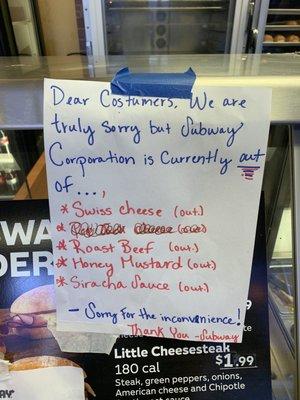 Dear Costumers, We are
truly sorry but Subway
Corporation is currently out
of...,
* Swiss cheese (out)
* Cheese (out)
* Roast Beef (out)
* Honey Mustard (out)
* Siracha Sauce (out)
- Sorry for the inconvenience!
Thank You -Subway
WA
DER
Little Cheesesteak
180 cal
$1.99
Steak, green peppers, onions,
American cheese and Chipotle